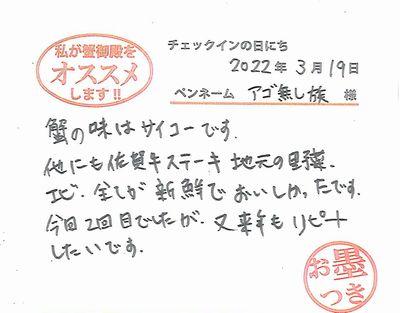 私が蟹御殿を
オススメ
します!!
チェックインの日にち
2022年 3月19日
ペンネーム アゴ無し族 様
蟹の味はサイコーです.
他にも佐賀牛ステーキ 地元の野菜.
エビ. 全てが新鮮でおいしかったです.
今回2回目でしたが. 又来年もリピート
したいです.
お墨
つき